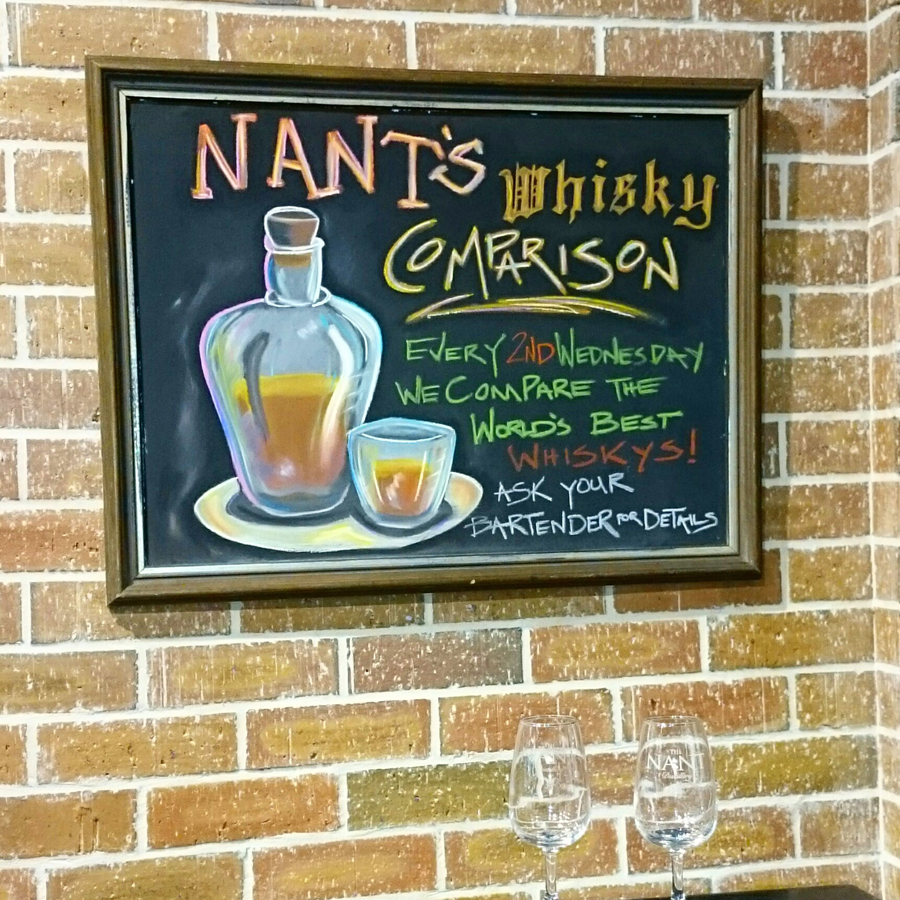 NANT'S
Whisky
COMPARISON
EVERY 2ND WEDNESDAY
WE COMPARE THE
WORLD'S BEST
WHISKYS!
ASK YOUR
BARTENDER FOR DETAILS
THE
NANT
Distillery